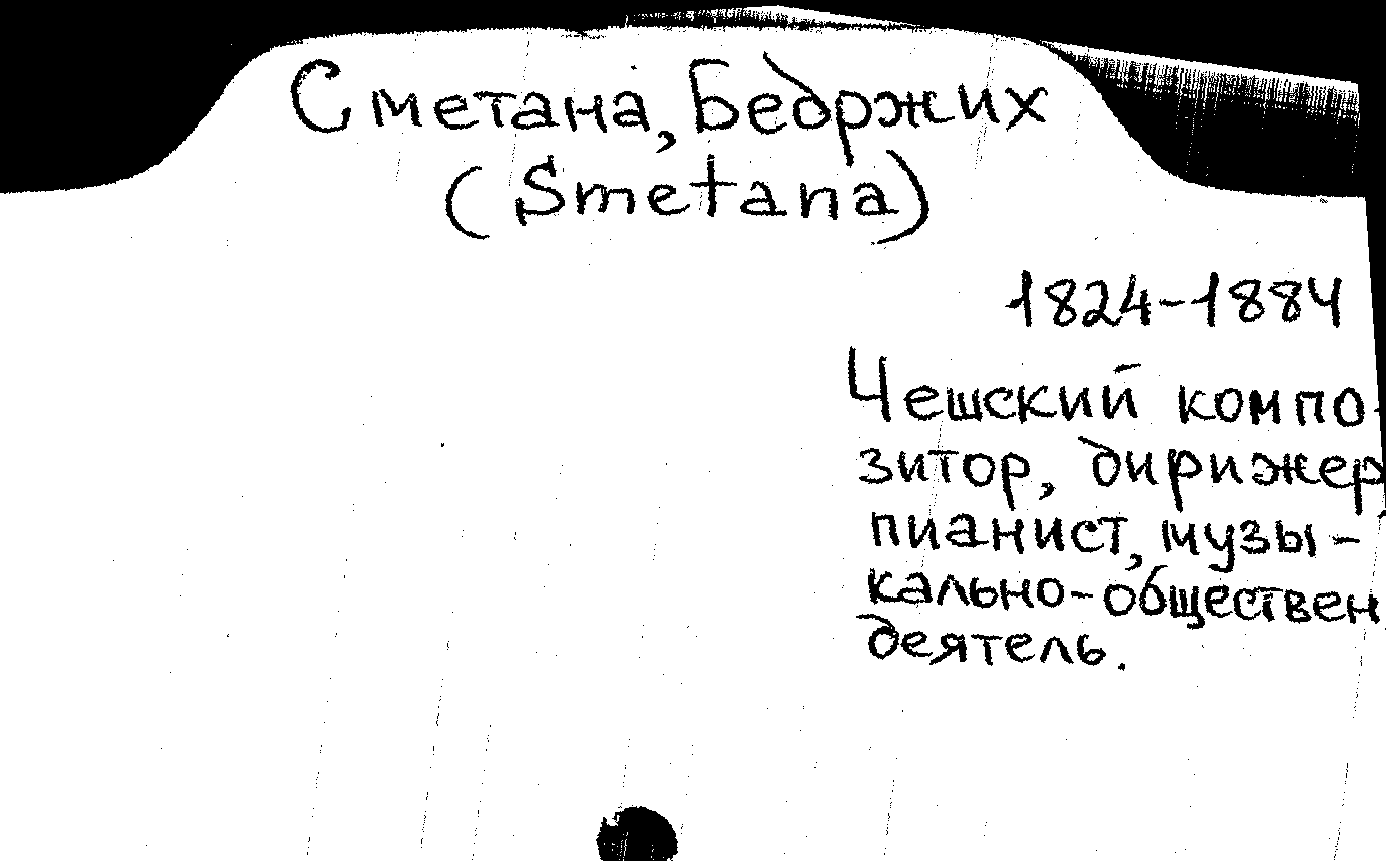 Сметана, Бедржих
(Smetana)
1824-1884
Чешский компо-
зитор, дирижер,
пианист, музы-
кально-обществен
деятель.